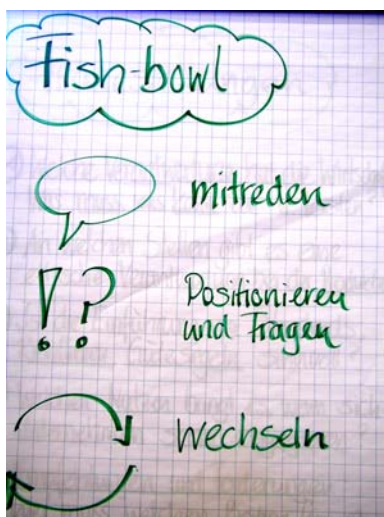 Fish-bowl
mitreden
!?
Positionieren
und Fragen
wechseln